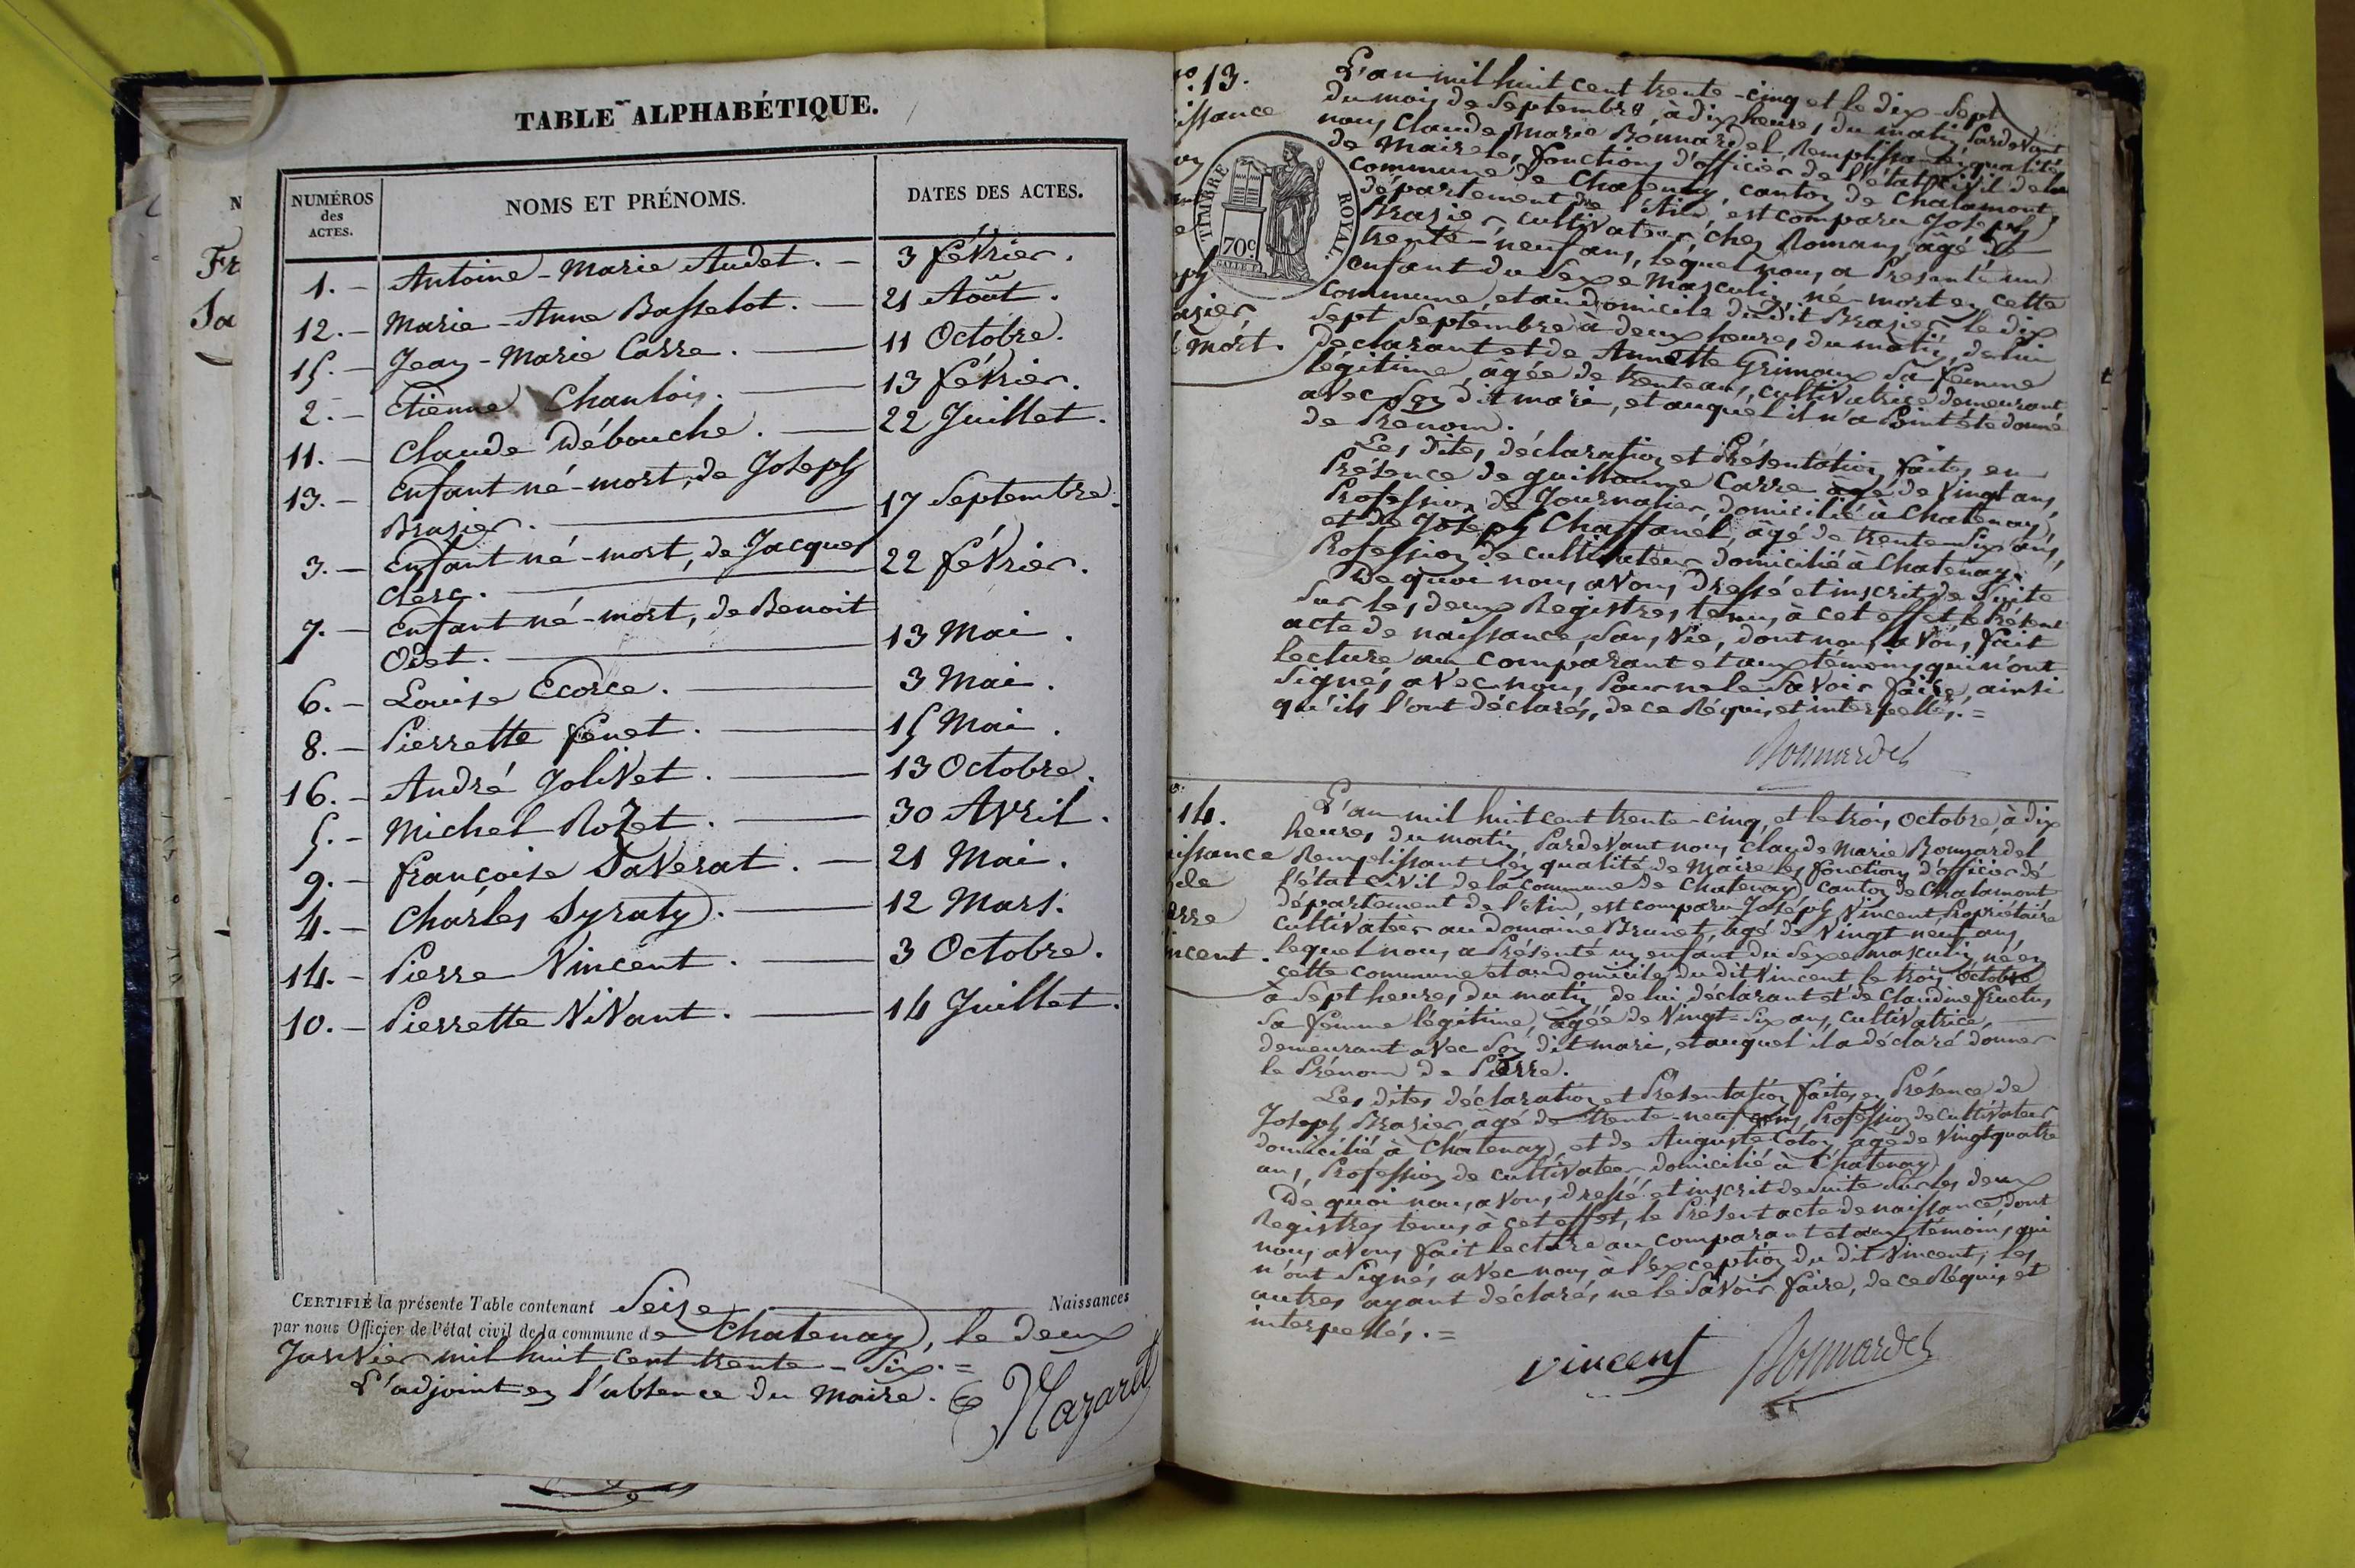 TABLE ALPHABÉTIQUE.
NUMÉROS des ACTES.
NOMS ET PRÉNOMS.
DATES DES ACTES.
1. — Antoine-Marie Audet. — 3 février.
12. — Marie-Anne Basselot. — 21 Août.
15. — Jean-Marie Carre. — 11 Octobre.
2. — Etienne Chanlois. — 13 février.
11. — Claude Débouche. — 22 Juillet.
13. — Enfant né-mort, de Joseph
Brazier. — 17 Septembre.
3. — Enfant né-mort, de Jacques
Clerc. — 22 février.
7. — Enfant né-mort, de Benoit
Odet. — 13 Mai.
6. — Louise Ecorce. — 3 Mai.
8. — Pierrette fenet. — 15 Mai.
16. — André Jolivet. — 13 Octobre.
5. — Michel Rozet. — 30 Avril.
9. — françoise Saverat. — 21 Mai.
4. — Charles Syraty. — 12 Mars.
14. — Pierre Vincent. — 3 Octobre.
10. — Pierrette Vivant. — 14 Juillet.
CERTIFIÉ la présente Table contenant Seize Naissances
par nous Officier de l'état civil de la commune de Chatenay, le deux
Janvier mil huit cent trente-six. =
L'adjoint en l'absence du Maire.
Nazaret
N
Fr
Sa
no. 13.
issance
azier
mort.
TIMBRE ROYAL.
70c
L'an mil huit cent trente-cinq et le dix-sept
du mois de Septembre, à dix heures du matin, Pardevant
nous Claude Marie Bonnardel, Remplissant en qualité
de Maire les fonctions d'officier de l'état civil de la
commune de Chatenay, canton de Chalamont,
département de l'Ain, est comparu Joseph
Brazier, cultivateur, chez Romans, âgé de
trente-neuf ans, lequel nous a Présenté un
enfant du Sexe Masculin, né-mort en cette
commune, et au domicile du dit Brazier le dix
Sept Septembre à deux heures du matin, de lui
déclarant et de Annette Grimoux Sa femme
légitime, âgée de trente ans, cultivatrice demeurant
avec Son dit mari, et auquel il n'a Point été donné
de Prénom.
Les dites déclaration et Présentation faites en
Présence de guillaume Carre âgé de vingt ans,
Profession de Journalier, domicilié à Chatenay,
et de Joseph Chaffanel, âgé de trente-Six ans,
Profession de cultivateur domicilié à Chatenay.
De quoi nous avons dressé et inscrit de Suite
Sur les deux Registres tenus à cet effet, le Présent
acte de naissance, Sans Vie, dont nous avons fait
lecture au comparant et aux témoins qui n'ont
Signés avec nous, Pour ne le Savoir faire, ainsi
qu'ils l'ont déclarés, de ce Réquis et interpellés. =
Bonnardel
14.
issance
de
erre
ncent.
L'an mil huit cent trente-cinq, et le trois Octobre, à dix
heures du matin, Pardevant nous Claude Marie Bonnardel
Remplissant en qualité de Maire les fonctions d'officier de
l'état civil de la commune de Chatenay canton de Chalamont
département de l'Ain, est comparu Joseph Vincent Propriétaire
Cultivateur au domaine Brunet, âgé de Vingt-neuf ans,
lequel nous a Présenté un enfant du Sexe masculin, né en
cette commune et au domicile du dit Vincent le trois Octobre
à Sept heures du matin, de lui déclarant et de Claudine fructus
Sa femme légitime, âgée de Vingt-Six ans, cultivatrice,
demeurant avec Son dit mari, et auquel il a déclaré donner
le Prénom de Pierre.
Les dites déclaration et Présentation faites en Présence de
Joseph Brazier âgé de trente-neuf ans, Profession de cultivateur
domicilié à Chatenay, et de Auguste Coton âgé de Vingt quatre
ans, Profession de cultivateur domicilié à Chatenay.
De quoi nous avons dressé et inscrit de Suite Sur les deux
Registres tenus à cet effet, le Présent acte de naissance, dont
nous avons fait lecture au comparant et aux témoins, qui
n'ont Signés avec nous à l'exception du dit Vincent, les
autres ayant déclarés ne le Savoir faire, de ce Réquis et
interpellés. =
Vincent Bonnardel